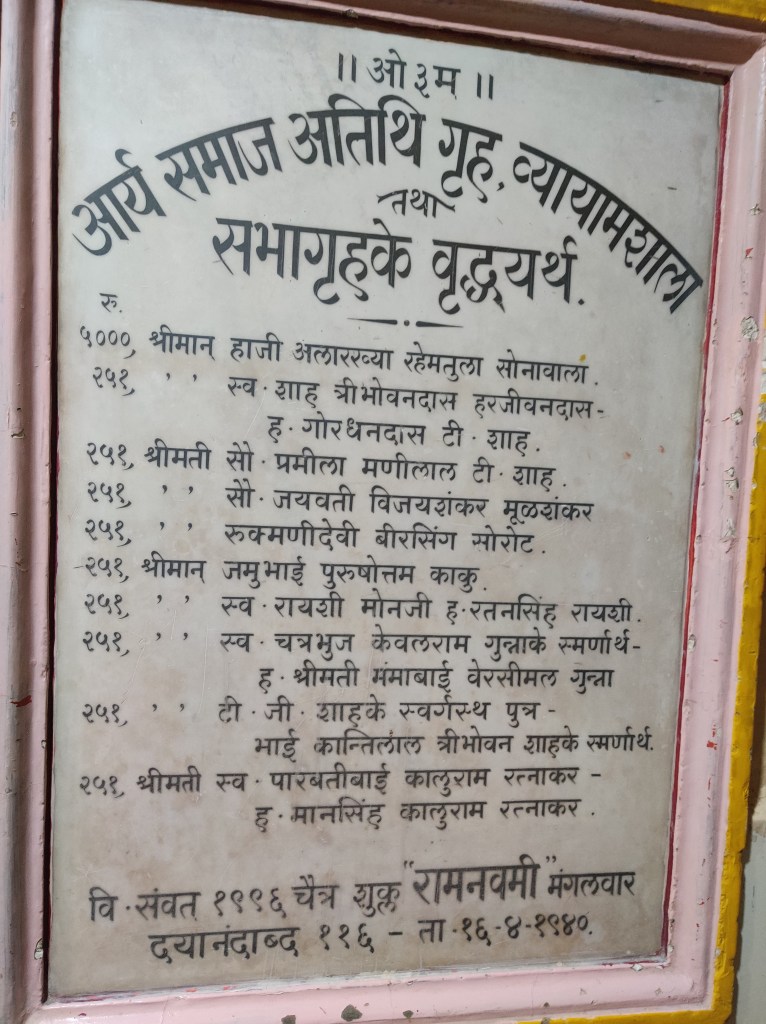 ।। ओ३म ।।
आर्य समाज अतिथि गृह, व्यायामशाला
तथा
सभागृहके वृद्ध्यर्थ.
रु.
५०००, श्रीमान् हाजी अलारख्या रहेमतुला सोनावाला.
२५१, ' ' स्व. शाह त्रीभोवनदास हरजीवनदास-
ह. गोरधनदास टी. शाह.
२५१, श्रीमती सौ. प्रमीला मणीलाल टी. शाह.
२५१, ' ' सौ. जयवती विजयशंकर मूळशंकर
२५१, ' ' रुक्मणीदेवी बीरसिंग सोरोट.
२५१, श्रीमान् जमुभाई पुरुषोत्तम काकु.
२५१, ' ' स्व. रायशी मोनजी ह. रतनसिंह रायशी.
२५१, ' ' स्व. चत्रभुज केवलराम गुन्नाके स्मर्णार्थ-
ह. श्रीमती मंमाबाई वेरसीमल गुन्ना
२५१, ' ' टी. जी. शाहके स्वर्गस्थ पुत्र -
भाई कान्तिलाल त्रीभोवन शाहके स्मर्णार्थ.
२५१, श्रीमती स्व. पारबतीबाई कालुराम रत्नाकर -
ह. मानसिंह कालुराम रत्नाकर.
वि. संवत् १९९६ चैत्र शुक्ल "रामनवमी" मंगलवार
दयानंदाब्द ११६ - ता. १६-४-१९४०.